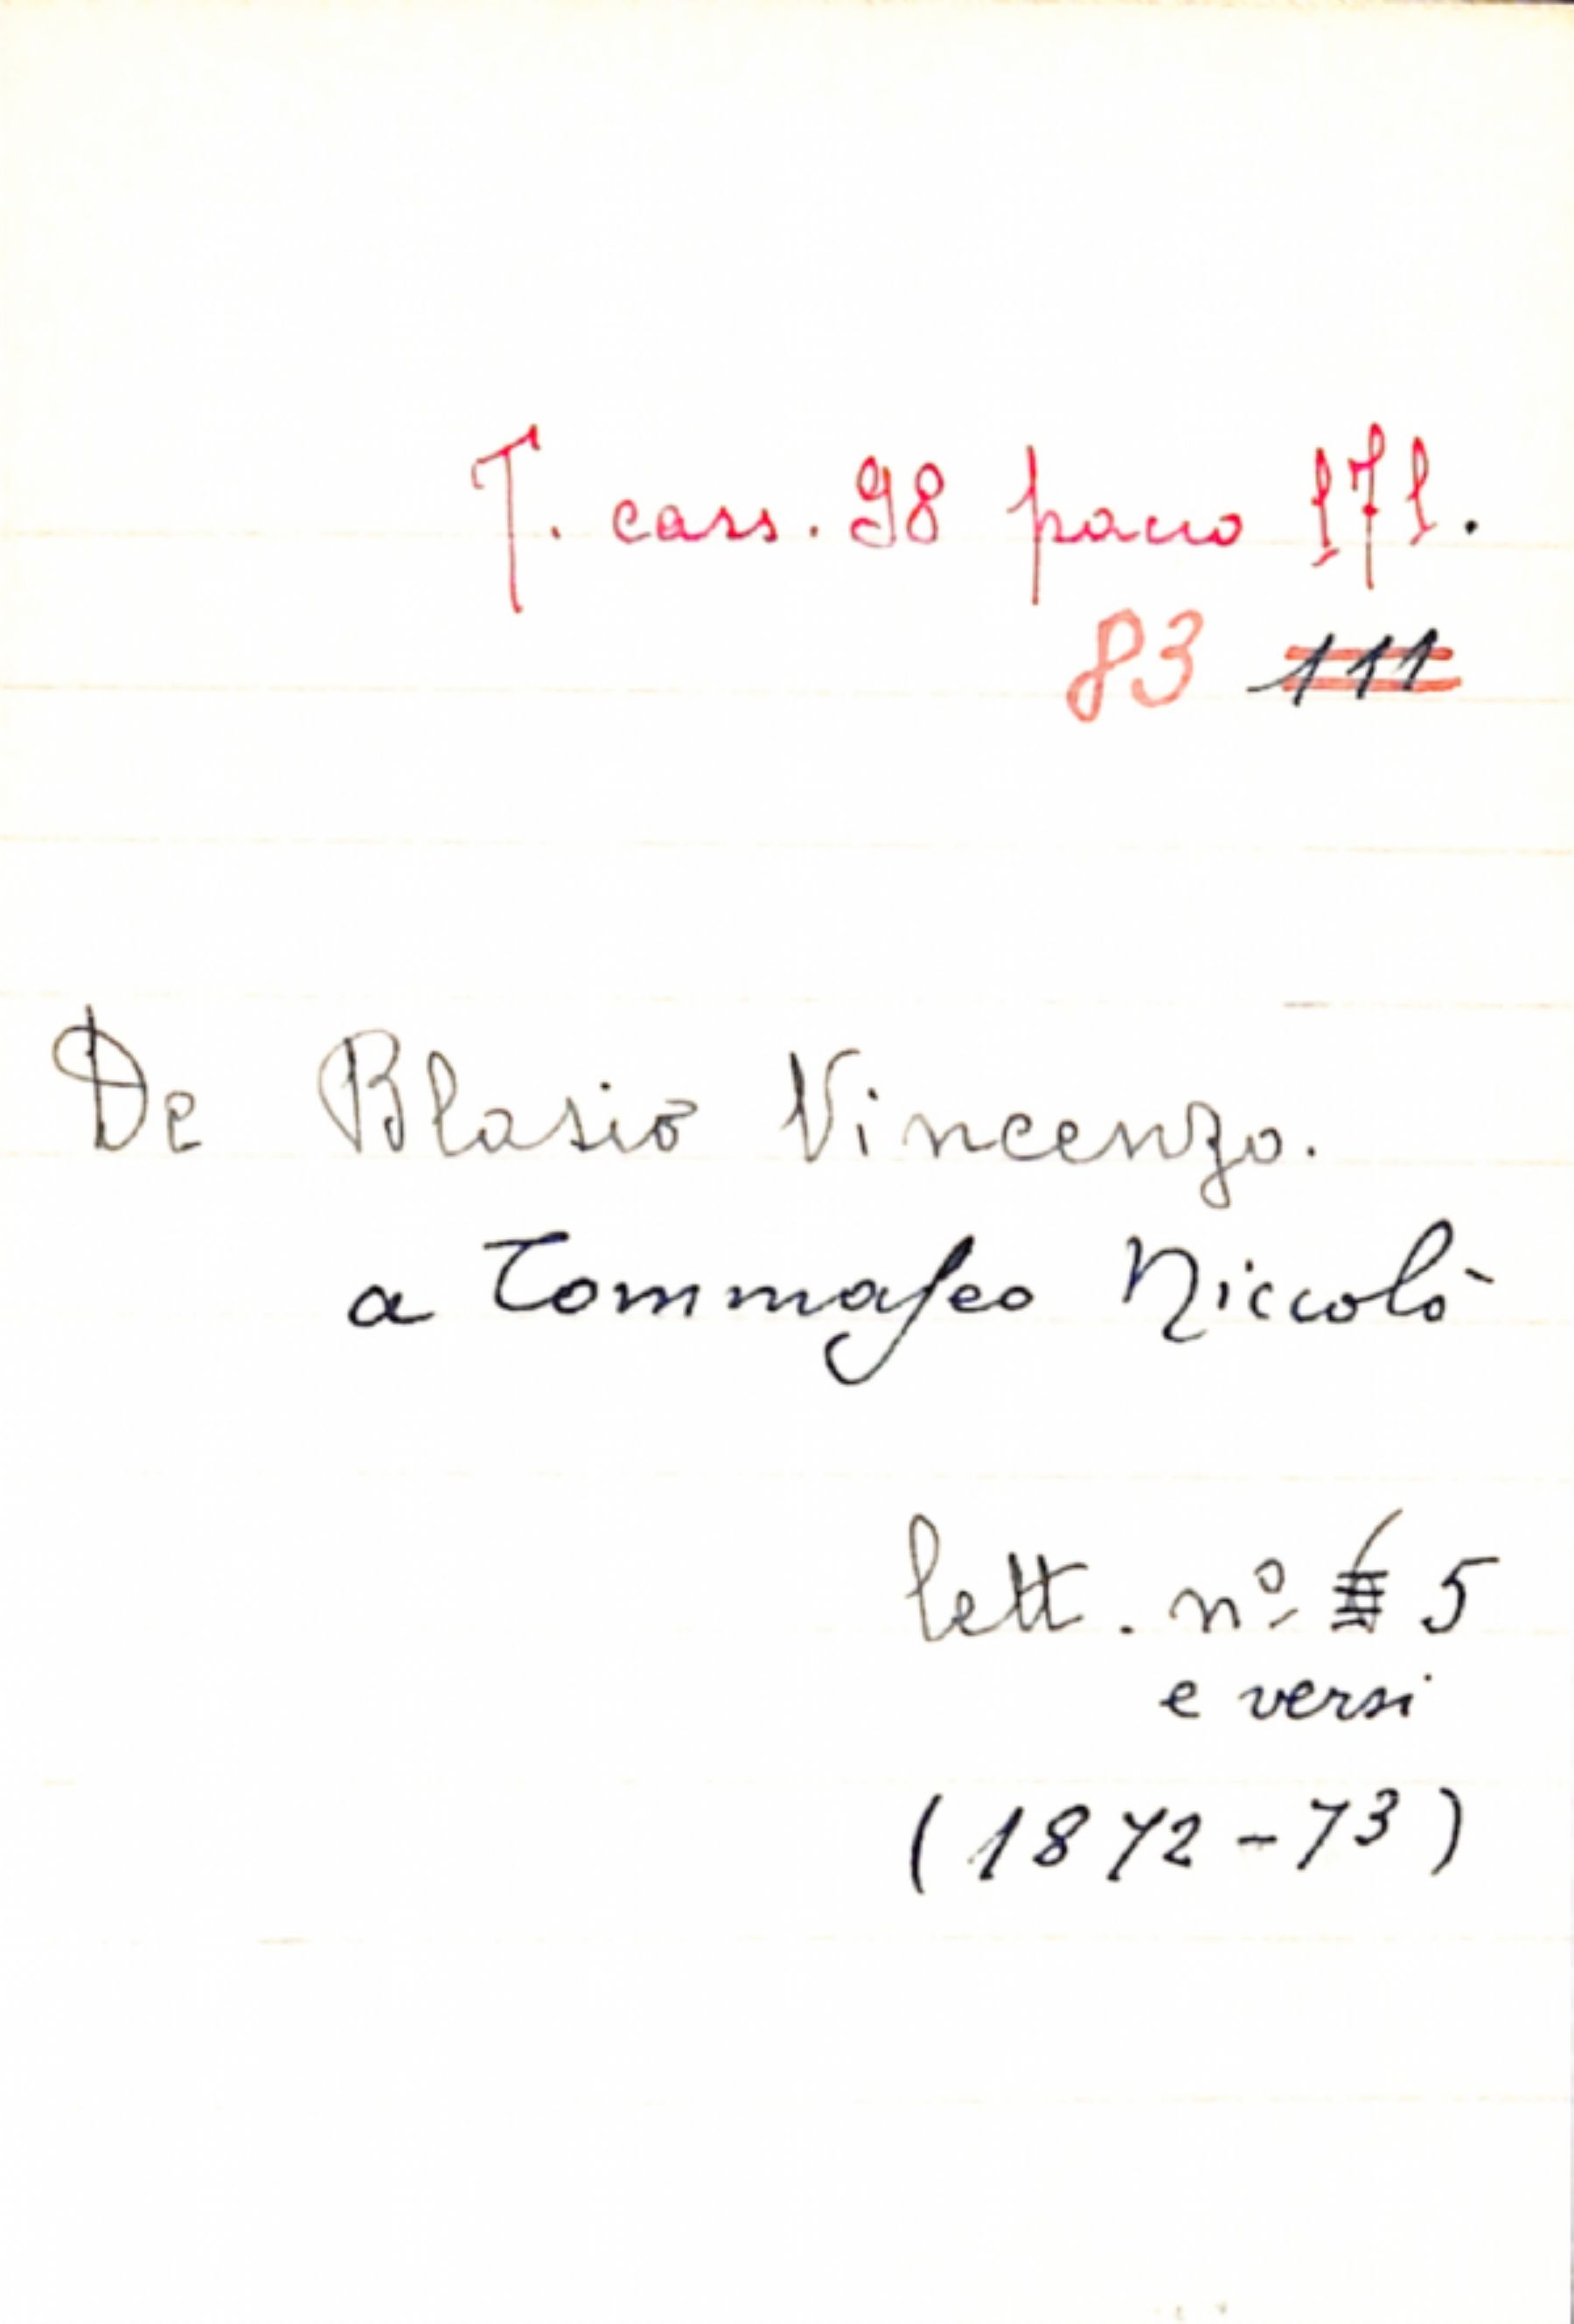 T. cass. 98 pacco 171.
83 111
De Blasio Vincenzo.
a Tommaseo Niccolò
lett. nº 6 5
e versi
(1872-73)